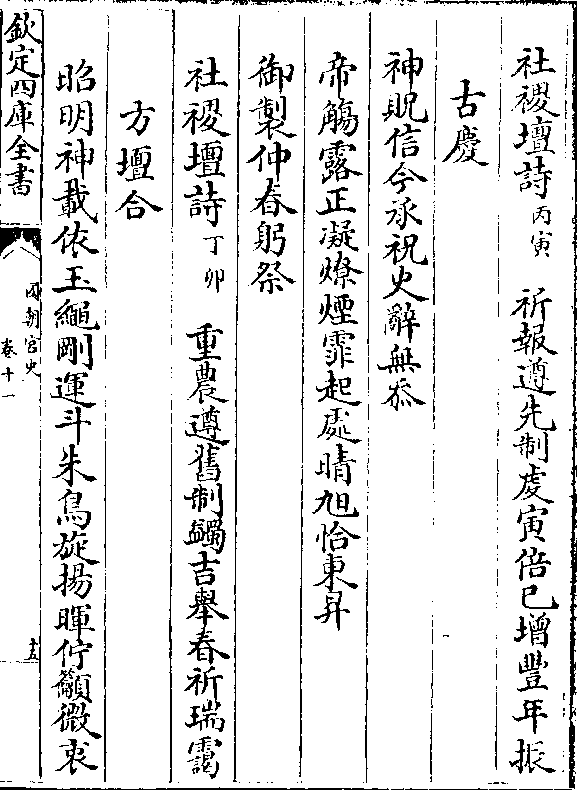 社稷壇詩丙寅 祈報遵先制䖍寅倍已增豐年振
古慶
神貺信今承祝史辭無忝
帝觴露正凝燎煙霏起處晴旭恰東昇
御製仲春躬祭
社稷壇詩丁卯 重農遵舊制蠲吉舉春祈瑞靄
方壇合
昭明神載依玉繩剛運斗朱鳥旋揚暉佇籲微衷
欽定四庫全書
國朝宮史
卷十一
十五